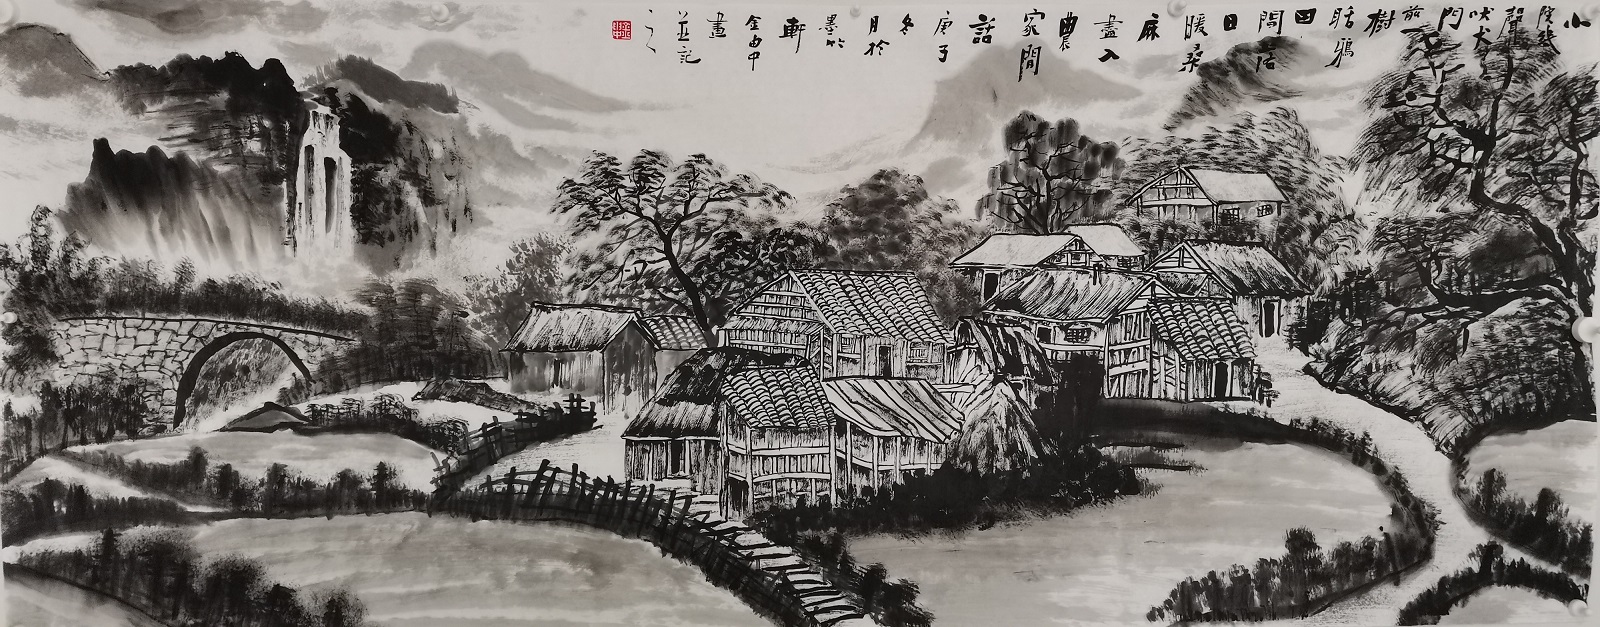 小
院幾
聲
吠犬
門
前
樹
聒鴉
田
間
日
暖桑
麻
盡入
農
家間
話
庚子
冬
月於
墨竹
軒
金由中
畫
並記
之